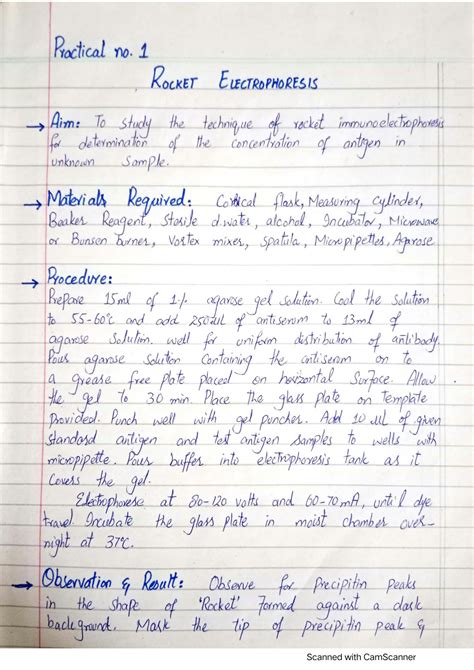 Practical no. 1
ROCKET ELECTROPHORESIS
→ Aim: To study the technique of rocket immunoelectrophoresis
for determination of the concentration of antigen in
unknown sample.
→ Materials Required: Conical flask, Measuring cylinder,
Beaker Reagent, Sterile d.water, alcohol, Incubator, Microwave
or Bunsen burner, Vortex mixer, spatula, Micropipettes, Agarose
→ Procedure:
Prepare 15ml of 1% agarose gel solution. Cool the solution
to 55-60°c and add 250ul of antiserum to 13ml of
agarose solution. well for uniform distribution of antibody.
Pour agarose solution containing the antiserum on to
a grease free plate placed on horizontal surface. Allow
the gel to 30 min. Place the glass plate on template
Provided. Punch well with gel puncher. Add 10 ul of given
standard antigen and test antigen samples to wells with
micropipette. Pour buffer into electrophoresis tank as it
covers the gel.
Electrophorese at 80-120 volts and 60-70mA, until dye
travel Incubate the glass plate in moist chamber over-
night at 37°C.
→ Observation & Result: Observe for Precipitin peaks
in the shape of 'Rocket' formed against a dark
background. Mark the tip of precipitin peak &
Scanned with CamScanner